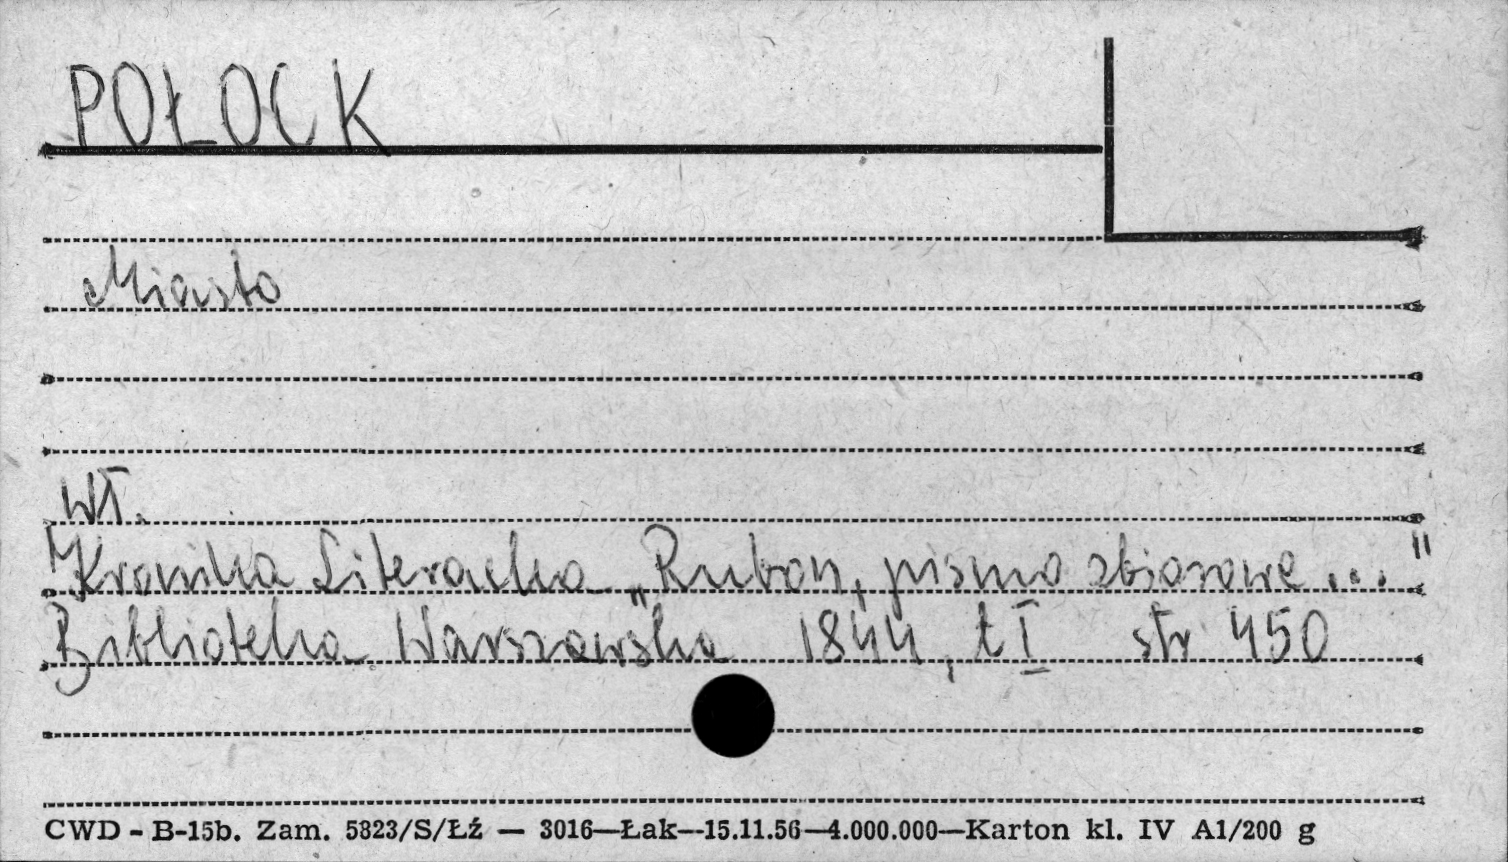 POŁOCK
Miasto
wł.
"Kronika Literacka „Rubon, pismo zbiorowe..."
Biblioteka Warszawska 1844, t I str 450
CWD - B-15b. Zam. 5823/S/Łź — 3016—Łak—15.11.56—4.000.000—Karton kl. IV A1/200 g